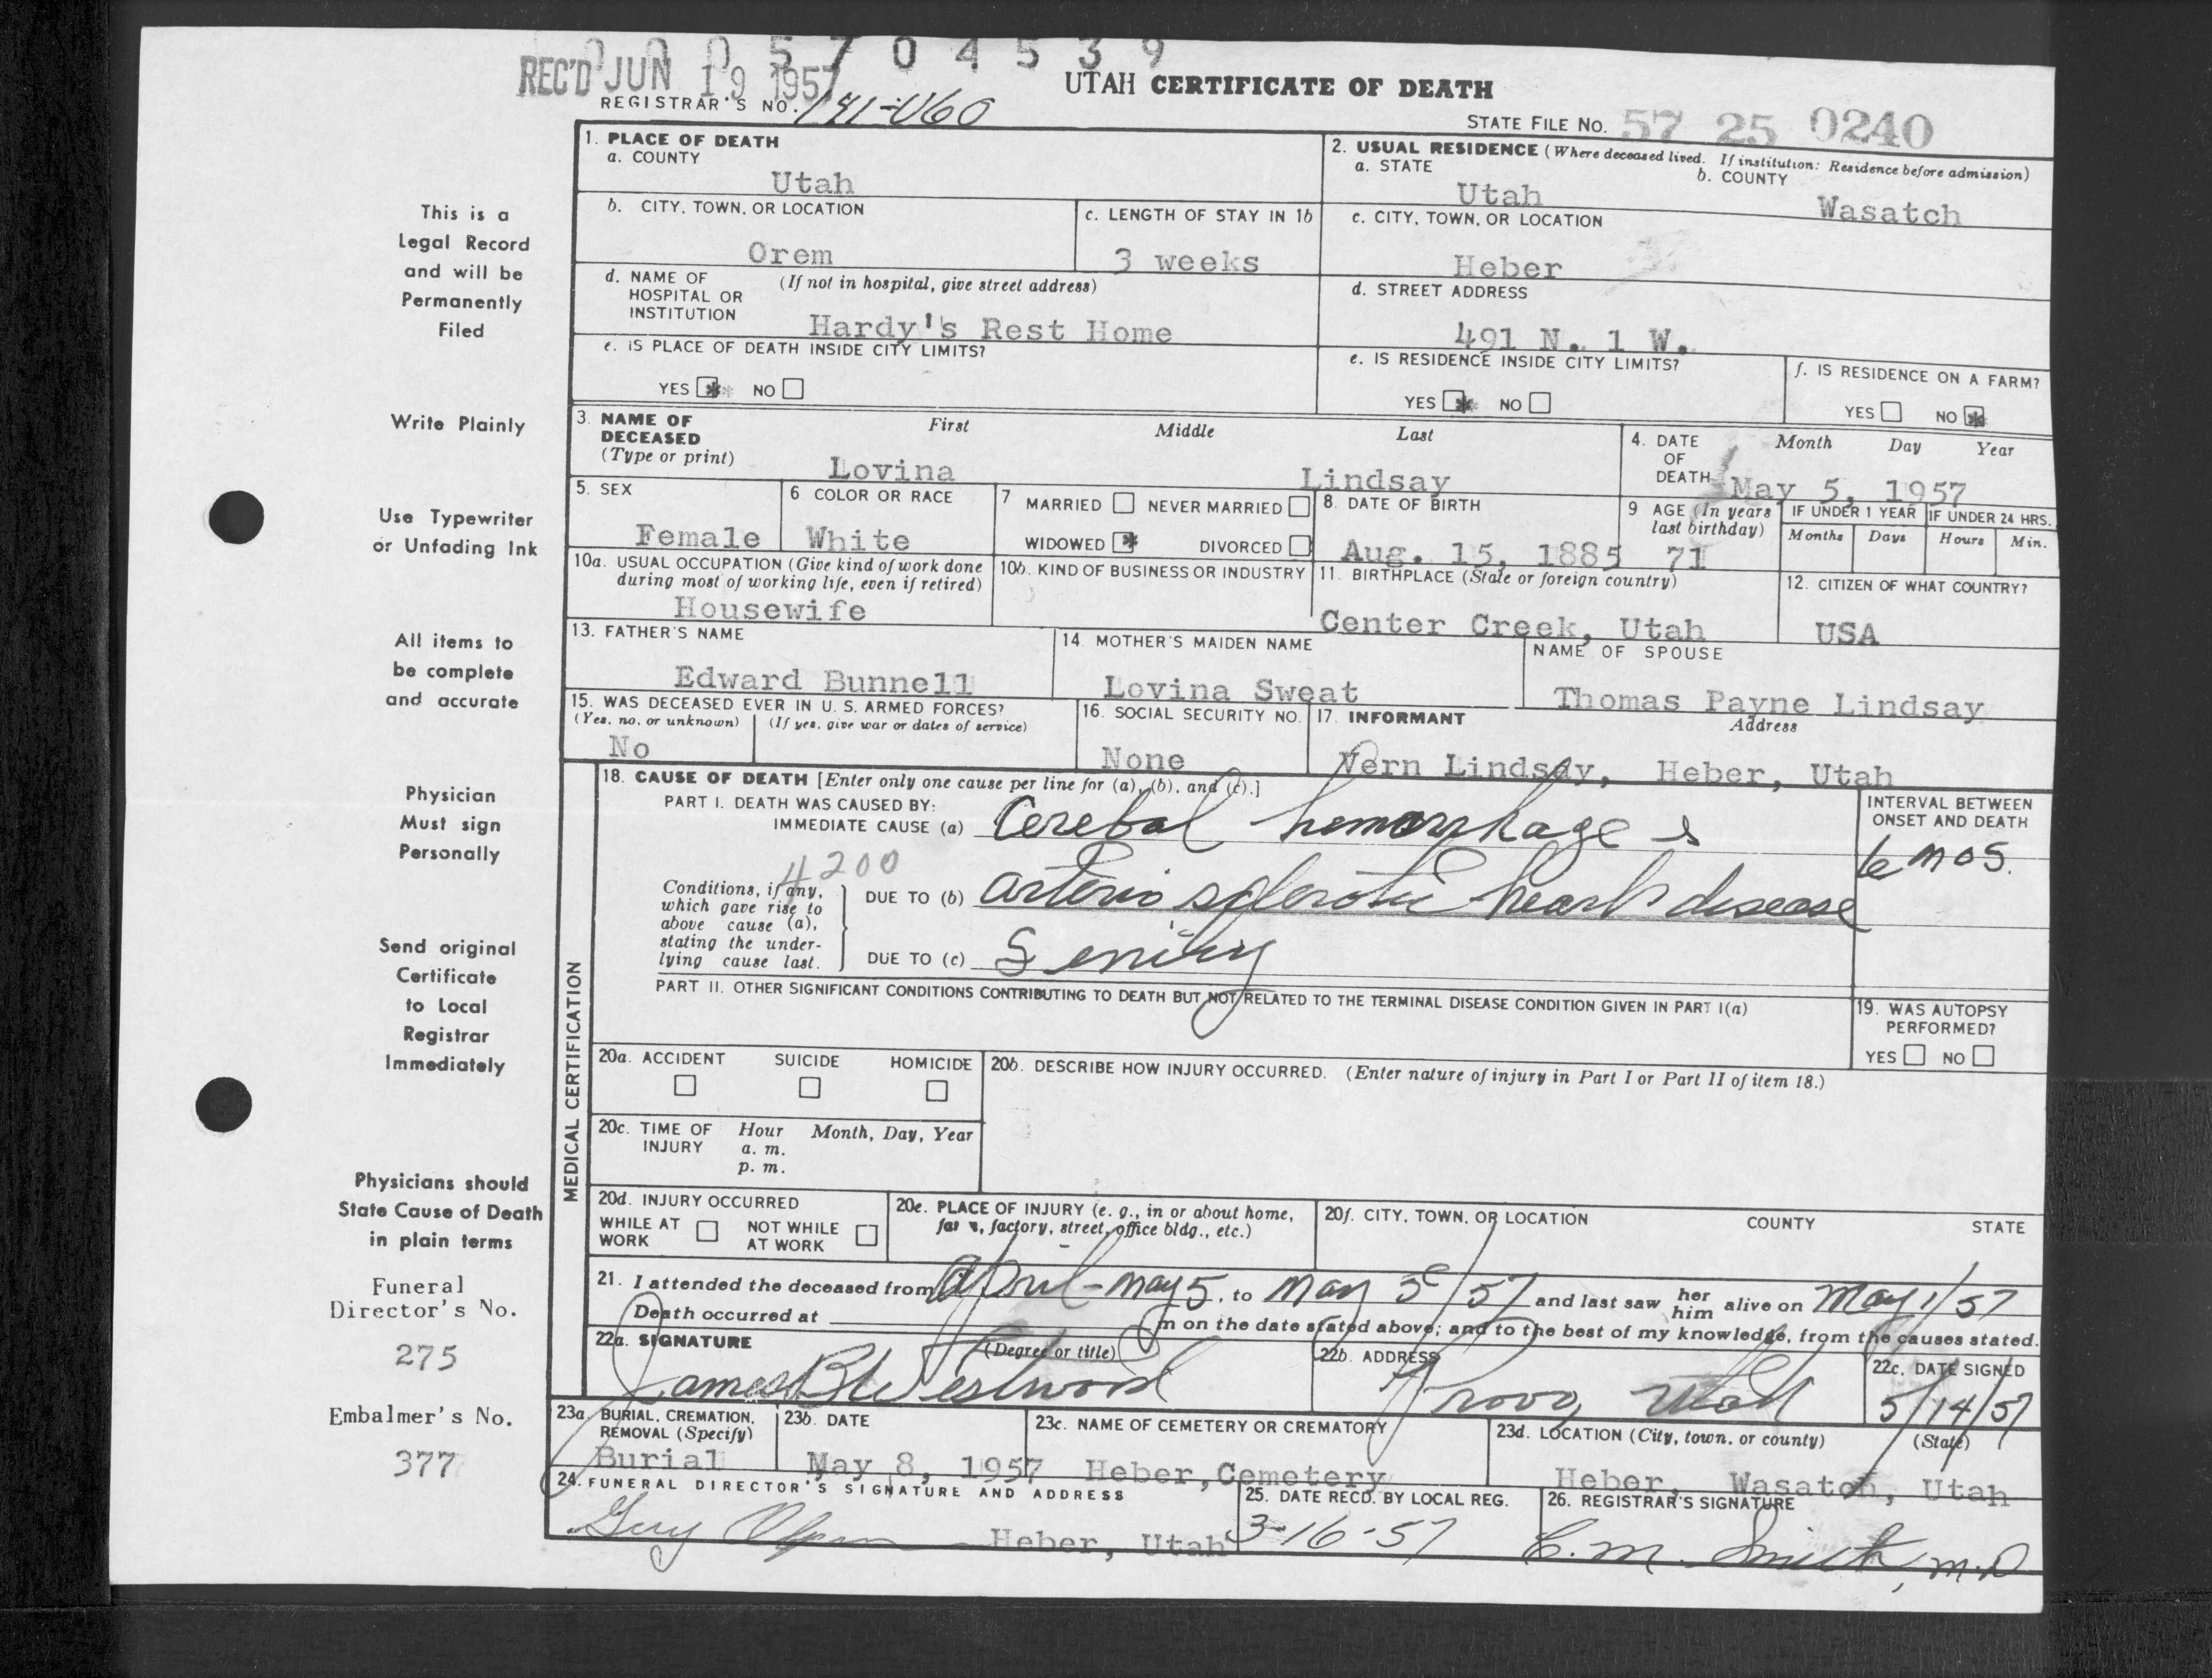 0 0 0 5 7 0 4 5 3 9
REC'D JUN 19 1957
UTAH CERTIFICATE OF DEATH
REGISTRAR'S NO.
STATE FILE NO. 57 25 0240
1. PLACE OF DEATH
a. COUNTY
Utah
2. USUAL RESIDENCE (Where deceased lived. If institution: Residence before admission)
a. STATE
Utah
b. COUNTY
Wasatch
b. CITY, TOWN, OR LOCATION
Orem
c. LENGTH OF STAY IN 1b
3 weeks
c. CITY, TOWN, OR LOCATION
Heber
d. NAME OF HOSPITAL OR INSTITUTION
(If not in hospital, give street address)
Hardy's Rest Home
d. STREET ADDRESS
491 N. 1 W.
e. IS PLACE OF DEATH INSIDE CITY LIMITS?
YES * NO
e. IS RESIDENCE INSIDE CITY LIMITS?
YES * NO
f. IS RESIDENCE ON A FARM?
YES NO *
3. NAME OF DECEASED (Type or print)
First Middle Last
Lovina Lindsay
4. DATE OF DEATH
Month Day Year
May 5, 1957
5. SEX
Female
6 COLOR OR RACE
White
7 MARRIED NEVER MARRIED
WIDOWED * DIVORCED
8. DATE OF BIRTH
Aug. 15, 1885
9 AGE (In years last birthday)
71
IF UNDER 1 YEAR
Months Days
IF UNDER 24 HRS.
Hours Min.
10a. USUAL OCCUPATION (Give kind of work done during most of working life, even if retired)
Housewife
10b. KIND OF BUSINESS OR INDUSTRY
11. BIRTHPLACE (State or foreign country)
Center Creek, Utah
12. CITIZEN OF WHAT COUNTRY?
USA
13. FATHER'S NAME
Edward Bunnell
14. MOTHER'S MAIDEN NAME
Lovina Sweat
NAME OF SPOUSE
Thomas Payne Lindsay
15. WAS DECEASED EVER IN U. S. ARMED FORCES?
(Yes, no, or unknown) (If yes, give war or dates of service)
No
16. SOCIAL SECURITY NO.
None
17. INFORMANT Address
Vern Lindsay, Heber, Utah
MEDICAL CERTIFICATION
18. CAUSE OF DEATH [Enter only one cause per line for (a), (b), and (c).]
PART I. DEATH WAS CAUSED BY:
IMMEDIATE CAUSE (a) Cerebal hemorrhage
INTERVAL BETWEEN ONSET AND DEATH
6 mos.
4200
Conditions, if any, which gave rise to above cause (a), stating the underlying cause last.
DUE TO (b) arterio sclerotic heart disease
DUE TO (c)
PART II. OTHER SIGNIFICANT CONDITIONS CONTRIBUTING TO DEATH BUT NOT RELATED TO THE TERMINAL DISEASE CONDITION GIVEN IN PART I(a)
19. WAS AUTOPSY PERFORMED?
YES NO
20a. ACCIDENT SUICIDE HOMICIDE
20b. DESCRIBE HOW INJURY OCCURRED. (Enter nature of injury in Part I or Part II of item 18.)
20c. TIME OF INJURY
Hour Month, Day, Year
a. m.
p. m.
20d. INJURY OCCURRED
WHILE AT WORK NOT WHILE AT WORK
20e. PLACE OF INJURY (e. g., in or about home, farm, factory, street, office bldg., etc.)
20f. CITY, TOWN, OR LOCATION COUNTY STATE
21. I attended the deceased from April - May 5, to May 5/57 and last saw her him alive on May 1/57
Death occurred at m on the date stated above; and to the best of my knowledge, from the causes stated.
22a. SIGNATURE (Degree or title)
James B Westwood
22b. ADDRESS
Provo, Utah
22c. DATE SIGNED
5/14/57
23a. BURIAL, CREMATION, REMOVAL (Specify)
Burial
23b. DATE
May 8, 1957
23c. NAME OF CEMETERY OR CREMATORY
Heber, Cemetery
23d. LOCATION (City, town, or county) (State)
Heber, Wasatch, Utah
24. FUNERAL DIRECTOR'S SIGNATURE AND ADDRESS
Guy Heber, Utah
25. DATE RECD. BY LOCAL REG.
3-16-57
26. REGISTRAR'S SIGNATURE
C. M. Smith, M.D.
This is a
Legal Record
and will be
Permanently
Filed
Write Plainly
Use Typewriter
or Unfading Ink
All items to
be complete
and accurate
Physician
Must sign
Personally
Send original
Certificate
to Local
Registrar
Immediately
Physicians should
State Cause of Death
in plain terms
Funeral
Director's No.
275
Embalmer's No.
377